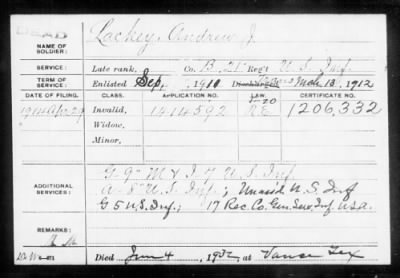 DEAD
NAME OF SOLDIER: Lackey, Andrew J.
SERVICE: Late rank, Co. B. 21" Reg't U. S. Inf.
TERM OF SERVICE: Enlisted Sep, 1910 Mch. 13, 1912
DATE OF FILING. CLASS. APPLICATION NO. LAW. CERTIFICATE NO.
1914 Apr 29 Invalid, 1414592 1206,332
Widow,
Minor,
G 9" M & I 7 U. S. Inf.
ADDITIONAL SERVICES: U. S. Inf.; Unas'd U. S. Inf
G 5 U. S. Inf.; 17 Rec. Co. Gen. Ser. Inf. U.S.A.
REMARKS:
Died June 4, 1932 at Vance Tex